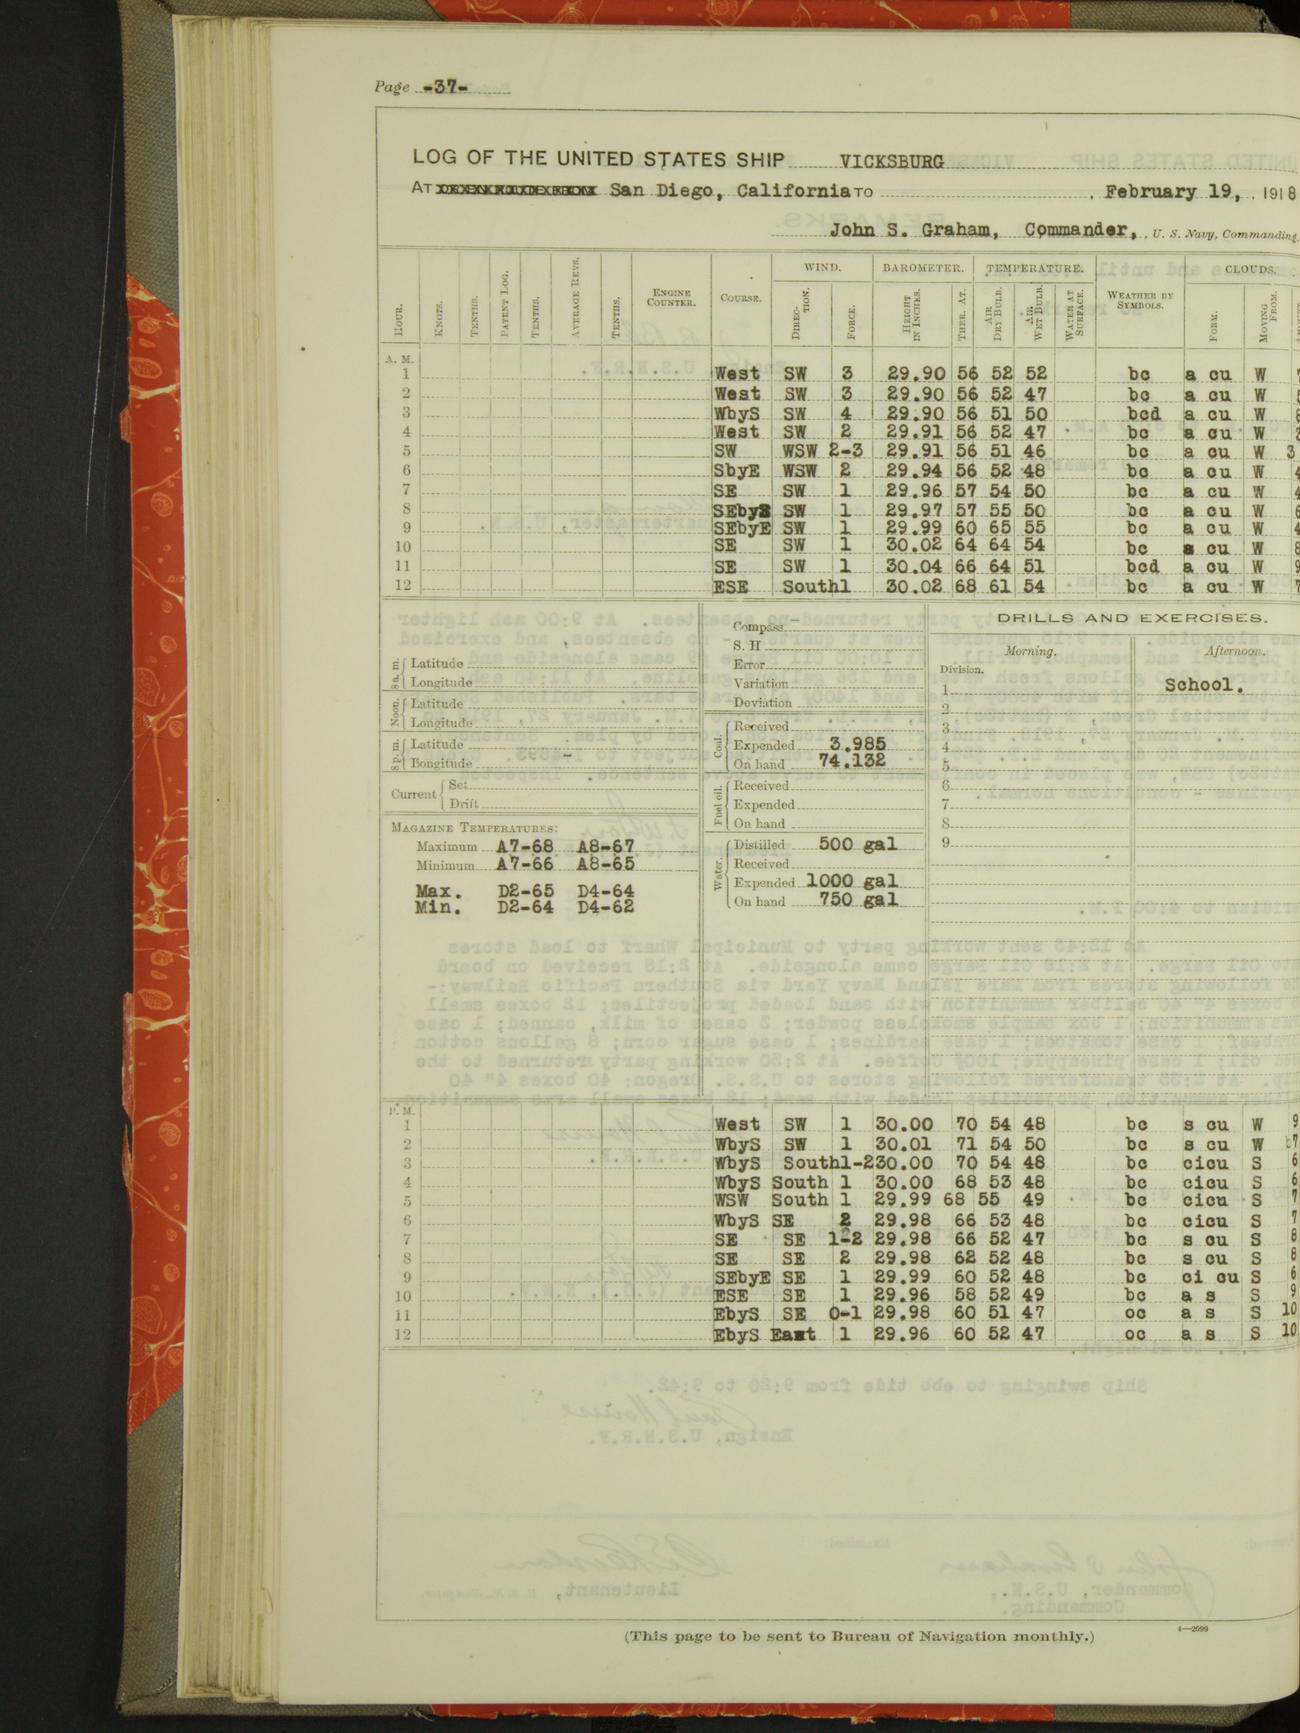 Page -37-
LOG OF THE UNITED STATES SHIP VICKSBURG
AT San Diego, California TO , February 19, , 1918
John S. Graham, Commander, , U. S. Navy, Commanding.
WIND. BAROMETER. TEMPERATURE. CLOUDS.
HOUR. KNOTS. TENTHS. PATENT LOG. TENTHS. AVERAGE REVS. TENTHS. ENGINE COUNTER. COURSE. DIRECTION. FORCE. HEIGHT IN INCHES. THER. AT. AIR DRY BULB. AIR WET BULB. WATER AT SURFACE. WEATHER BY SYMBOLS. FORM. MOVING FROM.
A. M.
1 West SW 3 29.90 56 52 52 bc a cu W 7
2 West SW 3 29.90 56 52 47 bc a cu W
3 WbyS SW 4 29.90 56 51 50 bcd a cu W
4 West SW 2 29.91 56 52 47 bc a cu W
5 SW WSW 2-3 29.91 56 51 46 bc a cu W 3
6 SbyE WSW 2 29.94 56 52 48 bc a cu W 4
7 SE SW 1 29.96 57 54 50 bc a cu W 4
8 SEbyS SW 1 29.97 57 55 50 bc a cu W 6
9 SEbyE SW 1 29.99 60 65 55 bc a cu W 4
10 SE SW 1 30.02 64 64 54 bc a cu W 8
11 SE SW 1 30.04 66 64 51 bcd a cu W 9
12 ESE South1 30.02 68 61 54 bc a cu W 7
8 a. m. Latitude
Longitude
Noon. Latitude
Longitude
8 p. m. Latitude
Longitude
Current Set
Drift
MAGAZINE TEMPERATURES:
Maximum A7-68 A8-67
Minimum A7-66 A8-65
Max. D2-65 D4-64
Min. D2-64 D4-62
Compass
S. H
Error
Variation
Deviation
Coal. Received
Expended 3.985
On hand 74.132
Fuel oil. Received
Expended
On hand
Water. Distilled 500 gal
Received
Expended 1000 gal
On hand 750 gal
DRILLS AND EXERCISES.
Morning. Afternoon.
Division.
1 School.
2
3
4
5
6
7
8
9
P. M.
1 West SW 1 30.00 70 54 48 bc s cu W 9
2 WbyS SW 1 30.01 71 54 50 bc s cu W 7
3 WbyS South1-230.00 70 54 48 bc cicu S 6
4 WbyS South 1 30.00 68 53 48 bc cicu S 6
5 WSW South 1 29.99 68 55 49 bc cicu S 7
6 WbyS SE 2 29.98 66 53 48 bc cicu S 7
7 SE SE 1-2 29.98 66 52 47 bc s cu S 8
8 SE SE 2 29.98 62 52 48 bc s cu S 8
9 SEbyE SE 1 29.99 60 52 48 bc ci cu S 6
10 ESE SE 1 29.96 58 52 49 bc a s S 9
11 EbyS SE 0-1 29.98 60 51 47 oc a s S 10
12 EbyS East 1 29.96 60 52 47 oc a s S 10
(This page to be sent to Bureau of Navigation monthly.)
4—2699